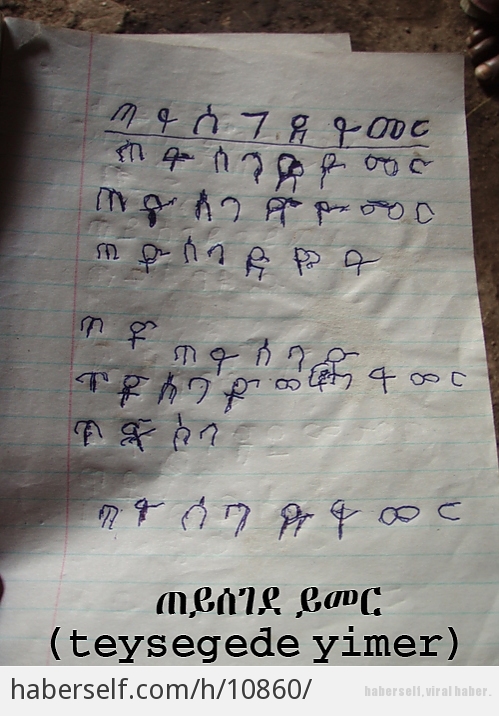 ጠይሰገደ ይመር
ጠይሰገደ ይመር
ጠይሰገደ ይመር
ጠይሰገደ ይ
ጠይ
ጠይሰገይ
ጠይሰገይመ ይመር
ጠይሰገ
ጠይሰገደ ይመር
ጠይሰገደ ይመር
(teysegede yimer)
haberself.com/h/10860/
haberself, viral haber.